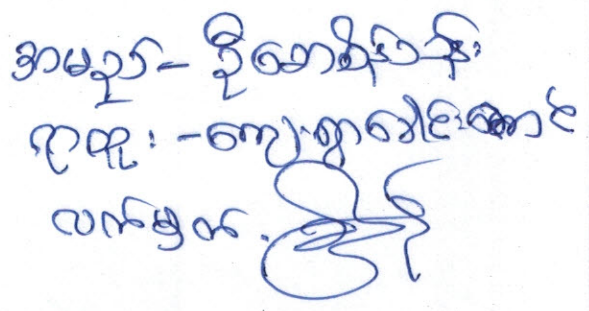 အမည် - ဦးမောင်စိန်ဝန်း
ရာထူး - ကျေးရွာခေါင်းဆောင်
လက်မှတ်